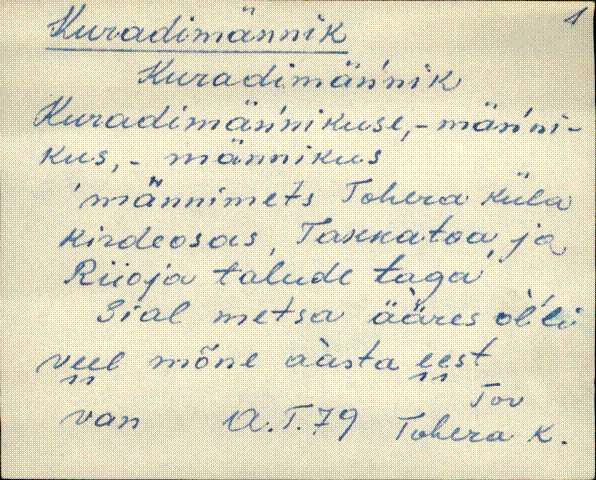 Kuradimännik 1
Kuradimän'nik
Kuradimän'nikuse, - män'ni-
kus, - männikus
'männimets Tohera küla
kirdeosas, Taxkatoa, ja
Riioja talude taga'
Sial metsa ä̀ä̀res òl'li
veel mõne àasta eest
van A.T. 79 Tov
Tohera k.